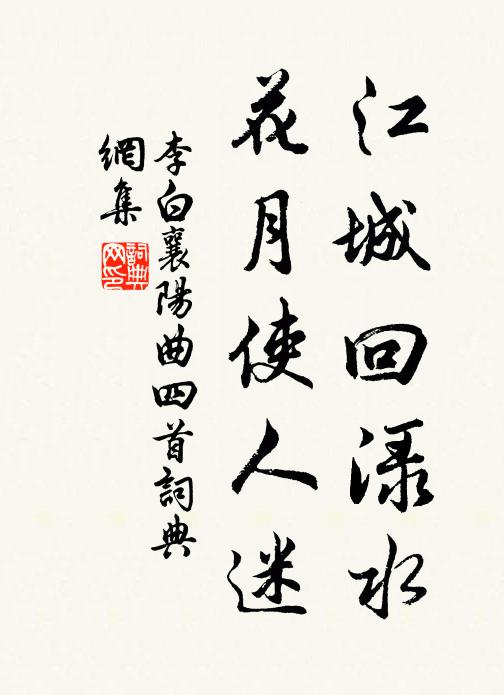 江城回渌水
花月使人迷
李白襄陽曲四首詞典
網集
詞典
网印